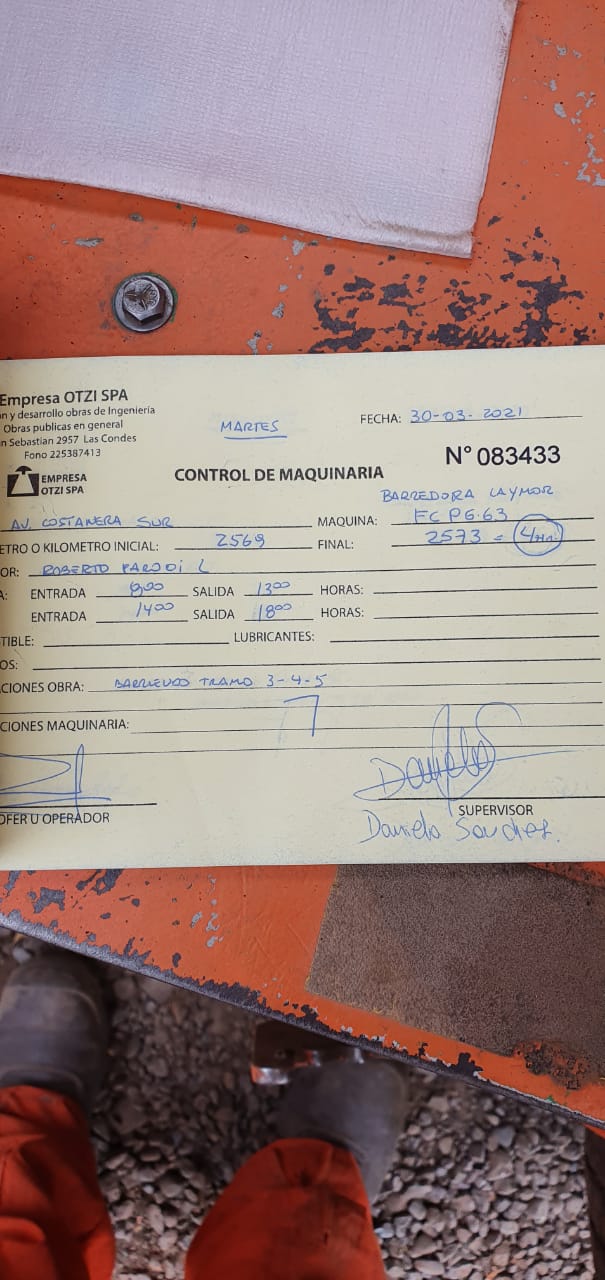 Empresa OTZI SPA
n y desarrollo obras de Ingeniería
Obras publicas en general
n Sebastian 2957 Las Condes
Fono 225387413
EMPRESA
OTZI SPA
MARTES
FECHA: 30-03-2021
N° 083433
CONTROL DE MAQUINARIA
BARREDORA LAYMOR
AV. COSTANERA SUR MAQUINA: FCPG.63
ETRO O KILOMETRO INICIAL: 2569 FINAL: 2573 = 4Hr.
OR: ROBERTO PARODI L
A: ENTRADA 8:00 SALIDA 13:00 HORAS:
ENTRADA 14:00 SALIDA 18:00 HORAS:
TIBLE: LUBRICANTES:
OS:
CIONES OBRA: BARRIENDO TRAMO 3-4-5
CIONES MAQUINARIA:
OFER U OPERADOR
Daniela
SUPERVISOR
Daniela Sanchez.